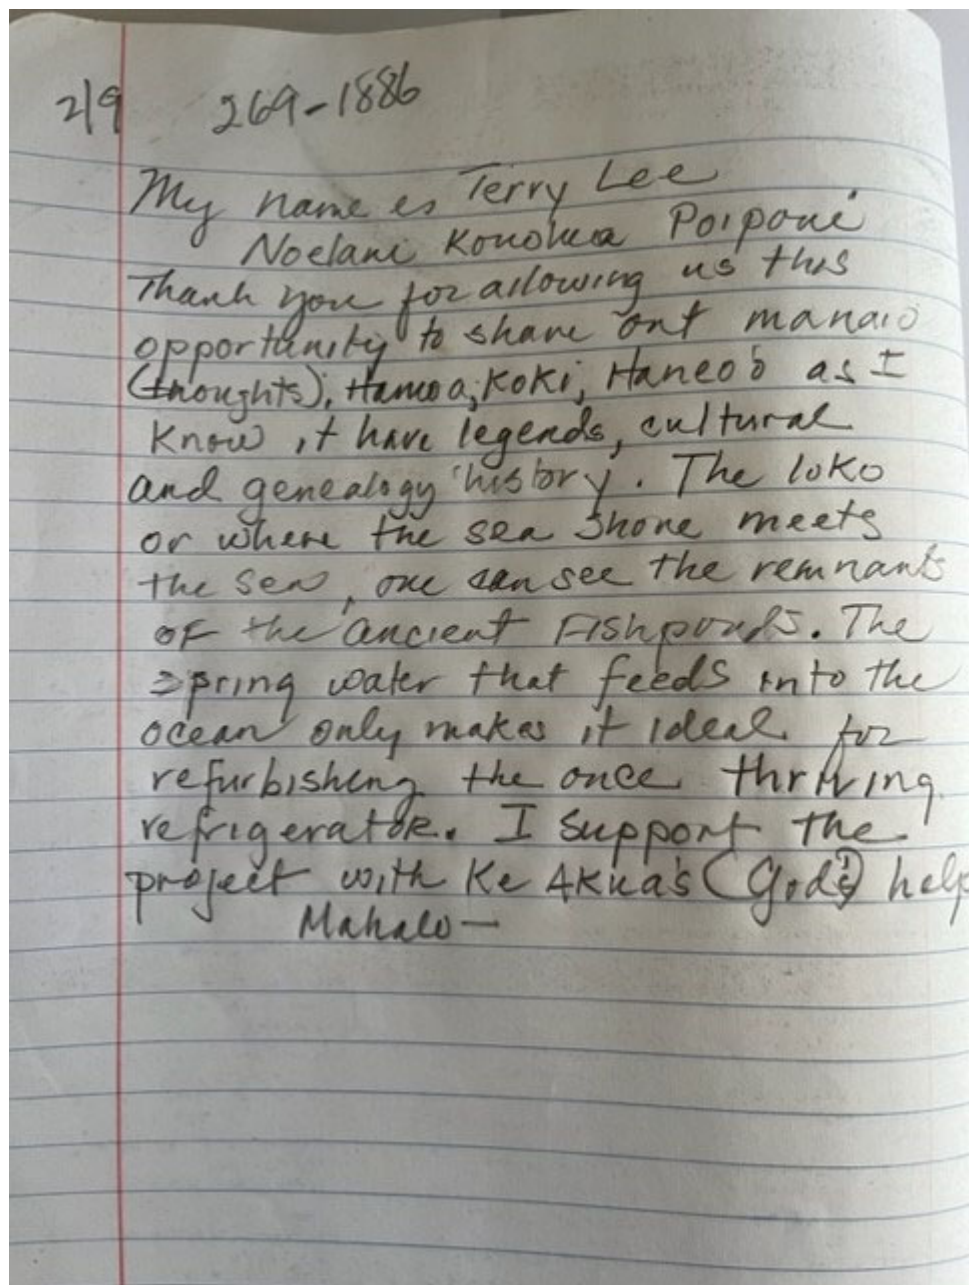 2/9 269-1886
My name is Terry Lee
Noelani Konohia Poipoui
Thank you for allowing us this
opportunity to share out manaio
(thoughts), Hamoa, Koki, Haneo'o as I
Know it have legends, cultural
and genealogy history. The loko
or where the sea shore meets
the sea, one can see the remnants
of the ancient Fishponds. The
spring water that feeds into the
ocean only makes it ideal for
refurbishing the once thriving
refrigerator. I support the
project with Ke Akua's (God's) help
Mahalo —